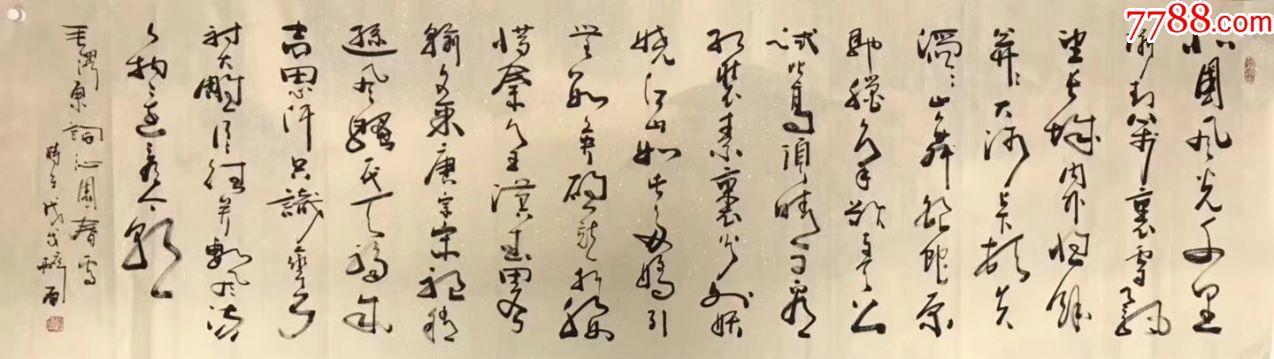 7788.com
北國风光千里
冰封萬裏雪飄
望长城内外惟餘
莽莽大河上下顿失
滔滔山舞銀蛇原
馳蠟象欲与天公
试比高須晴日看
红装素裹分外妖
娆江山如此多嬌引
无数英雄競折腰
惜秦皇漢武略
输文采唐宗宋祖稍
遜风騷一代天骄成
吉思汗只識弯弓
射大雕俱往矣數风流
人物還看今朝
毛澤東詞沁園春雪
時在戊戌